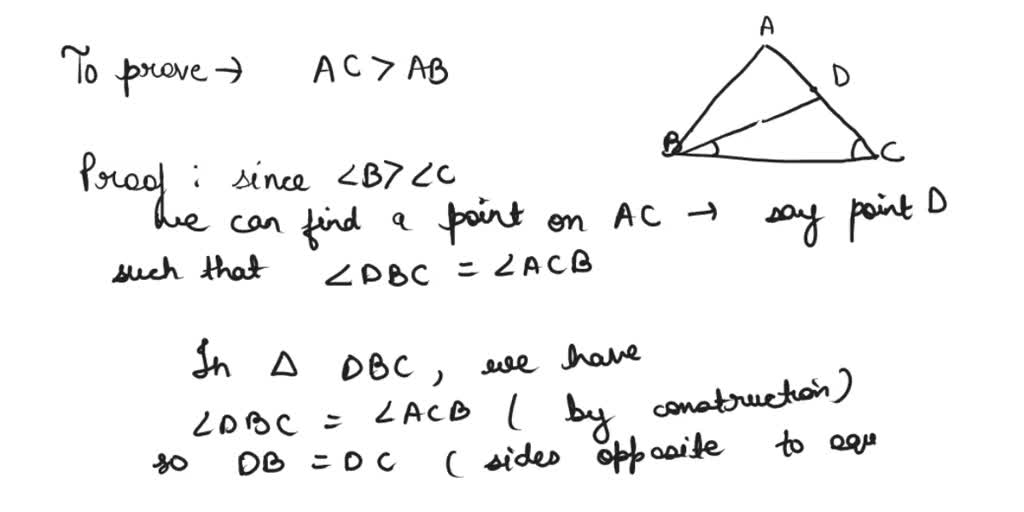 To prove → AC > AB
A
D
B
C
Proof : since ∠B > ∠C
We can find a point on AC → say point D
such that ∠DBC = ∠ACB
In Δ DBC, we have
∠DBC = ∠ACB ( by construction)
so DB = DC ( sides opposite to equ